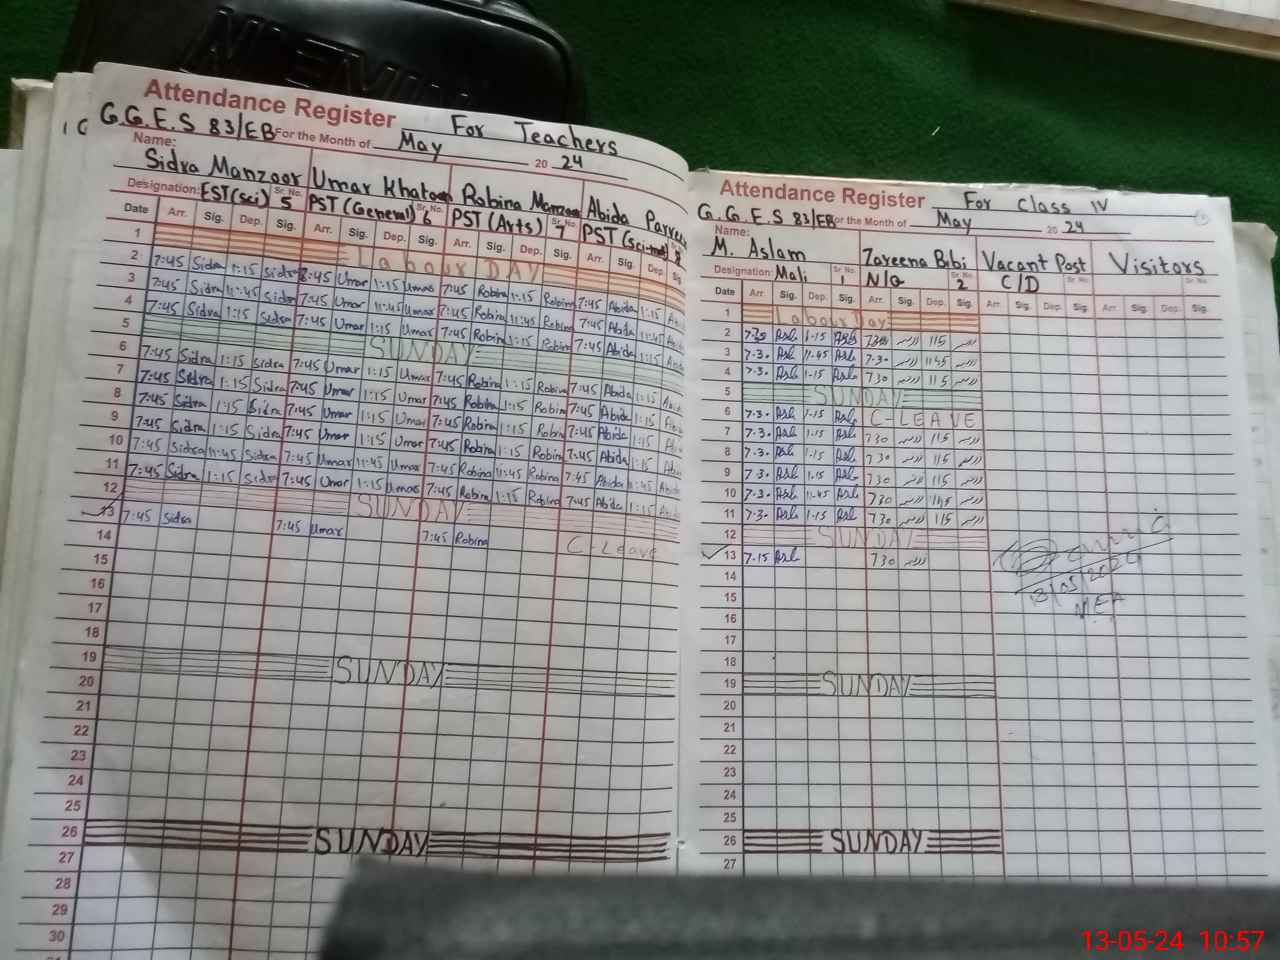 Attendance Register For Teachers
G.G.E.S 83/EB For the Month of May 20 24
Name: Sidra Manzoor Umar Khatoon Robina Manzoor Abida Parveen
Designation: EST(sci) Sr. No. 5 PST (General) Sr. No. 6 PST (Arts) Sr. No. 7 PST (sci-mat) 8
Date Arr. Sig. Dep. Sig. Arr. Sig. Dep. Sig. Arr. Sig. Dep. Sig. Arr. Sig. Dep. Sig.
1 Labour DAY
2 7:45 Sidra 1:15 Sidra 7:45 Umar 1:15 Umar 7:45 Robina 1:15 Robina 7:45 Abida 1:15
3 7:45 Sidra 11:45 Sidra 7:45 Umar 11:45 Umar 7:45 Robina 11:45 Robina 7:45 Abida 11:45
4 7:45 Sidra 1:15 Sidra 7:45 Umar 1:15 Umar 7:45 Robina 1:15 Robina 7:45 Abida 1:15
5 SUNDAY
6 7:45 Sidra 1:15 Sidra 7:45 Umar 1:15 Umar 7:45 Robina 1:15 Robina 7:45 Abida 1:15
7 7:45 Sidra 1:15 Sidra 7:45 Umar 1:15 Umar 7:45 Robina 1:15 Robina 7:45 Abida 1:15
8 7:45 Sidra 1:15 Sidra 7:45 Umar 1:15 Umar 7:45 Robina 1:15 Robina 7:45 Abida 1:15
9 7:45 Sidra 1:15 Sidra 7:45 Umar 1:15 Umar 7:45 Robina 1:15 Robina 7:45 Abida 1:15
10 7:45 Sidra 11:45 Sidra 7:45 Umar 11:45 Umar 7:45 Robina 11:45 Robina 7:45 Abida 11:45
11 7:45 Sidra 1:15 Sidra 7:45 Umar 1:15 Umar 7:45 Robina 1:15 Robina 7:45 Abida 1:15
12 SUNDAY
13 7:45 Sidra 7:45 Umar 7:45 Robina C-Leave
14
15
16
17
18
19 SUNDAY
20
21
22
23
24
25
26 SUNDAY
27
28
29
30
Attendance Register For Class IV
G.G.E.S 83/EB For the Month of May 20 24
Name: M. Aslam Zareena Bibi Vacant Post Visitors
Designation: Mali Sr No. 1 N/Q Sr. No. 2 C/D Sr. No. Sr. No.
Date Arr. Sig. Dep. Sig. Arr. Sig. Dep. Sig. Arr. Sig. Dep. Sig. Arr. Sig. Dep. Sig.
1 Labour Day
2 7.30 Asl 1.15 Asl 730 115
3 7.30 Asl 11.45 Asl 7.30 1145
4 7.30 Asl 1.15 Asl 730 115
5 SUNDAY
6 7.30 Asl 1.15 Asl C-LEAVE
7 7.30 Asl 1.15 Asl 730 115
8 7.30 Asl 1.15 Asl 730 115
9 7.30 Asl 1.15 Asl 730 115
10 7.30 Asl 11.45 Asl 730 1145
11 7.30 Asl 1.15 Asl 730 115
12 SUNDAY
13 7.15 Asl 730
14
15
16
17
18
19 SUNDAY
20
21
22
23
24
25
26 SUNDAY
27
13/05/2024
MEA
13-05-24 10:57